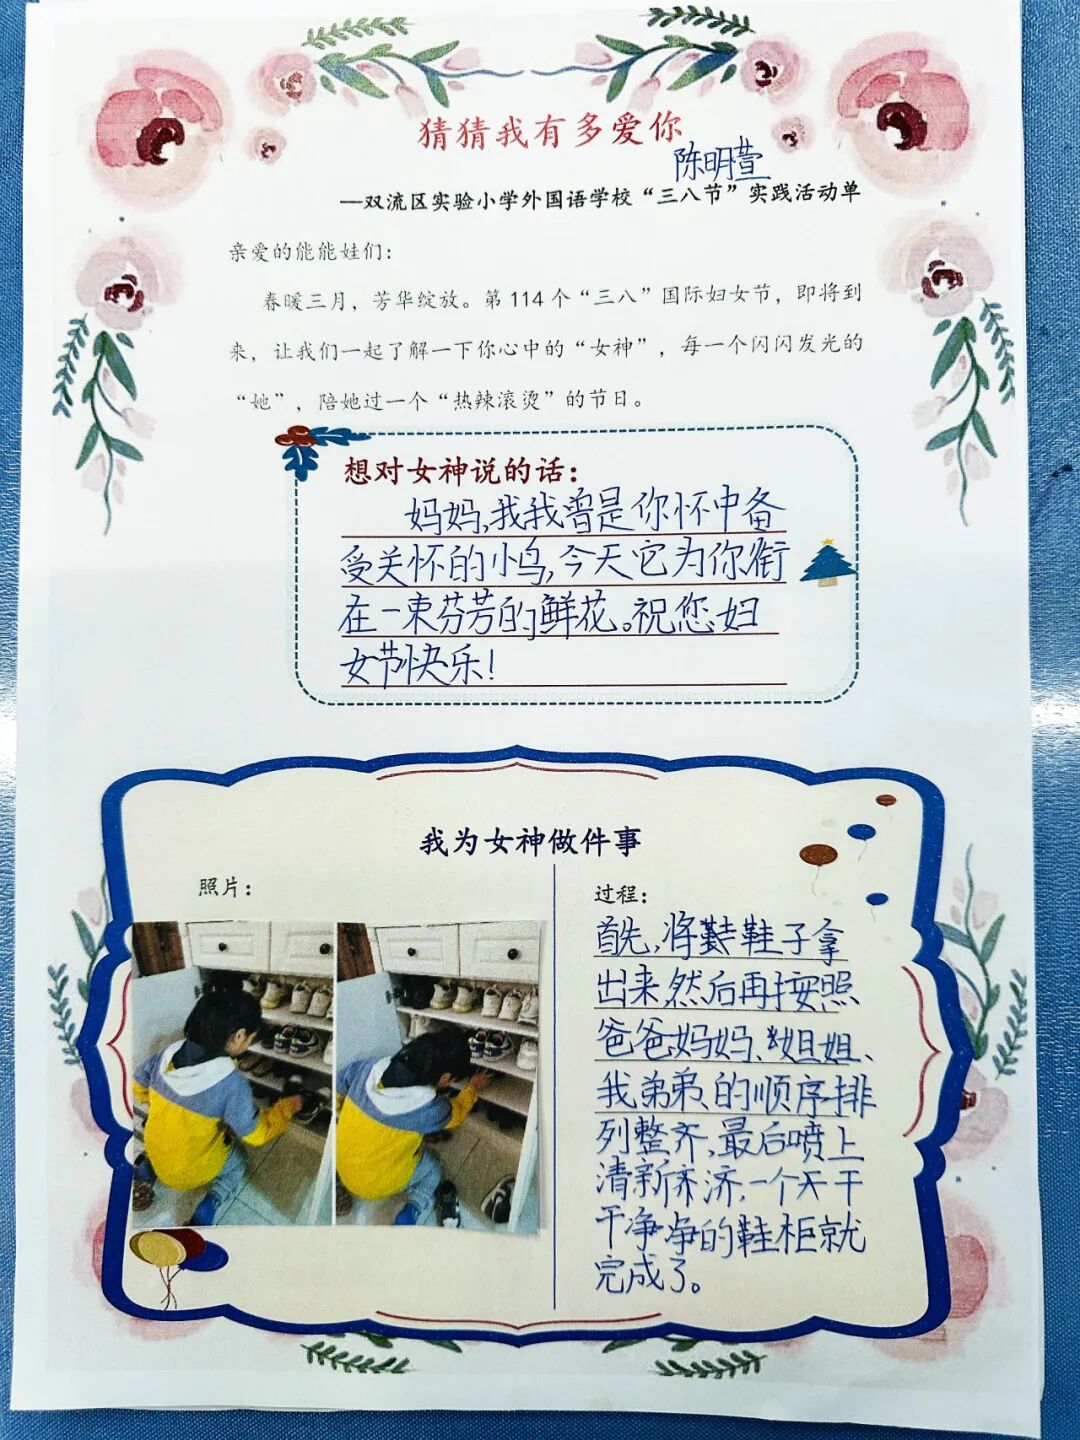 猜猜我有多爱你
陈明萱
—双流区实验小学外国语学校“三八节”实践活动单
亲爱的能能娃们：
春暖三月，芳华绽放。第 114 个“三八”国际妇女节，即将到
来，让我们一起了解一下你心中的“女神”，每一个闪闪发光的
“她”，陪她过一个“热辣滚烫”的节日。
想对女神说的话：
妈妈,我我曾是你怀中备
受关怀的小鸟,今天它为你衔
在一束芬芳的鲜花。祝您妇
女节快乐!
我为女神做件事
照片：
过程：
首先,将鞋子拿
出来,然后再按照
爸爸妈妈、姐姐、
我弟弟、的顺序排
列整齐,最后喷上
清新济,一个干
干净净的鞋柜就
完成了。